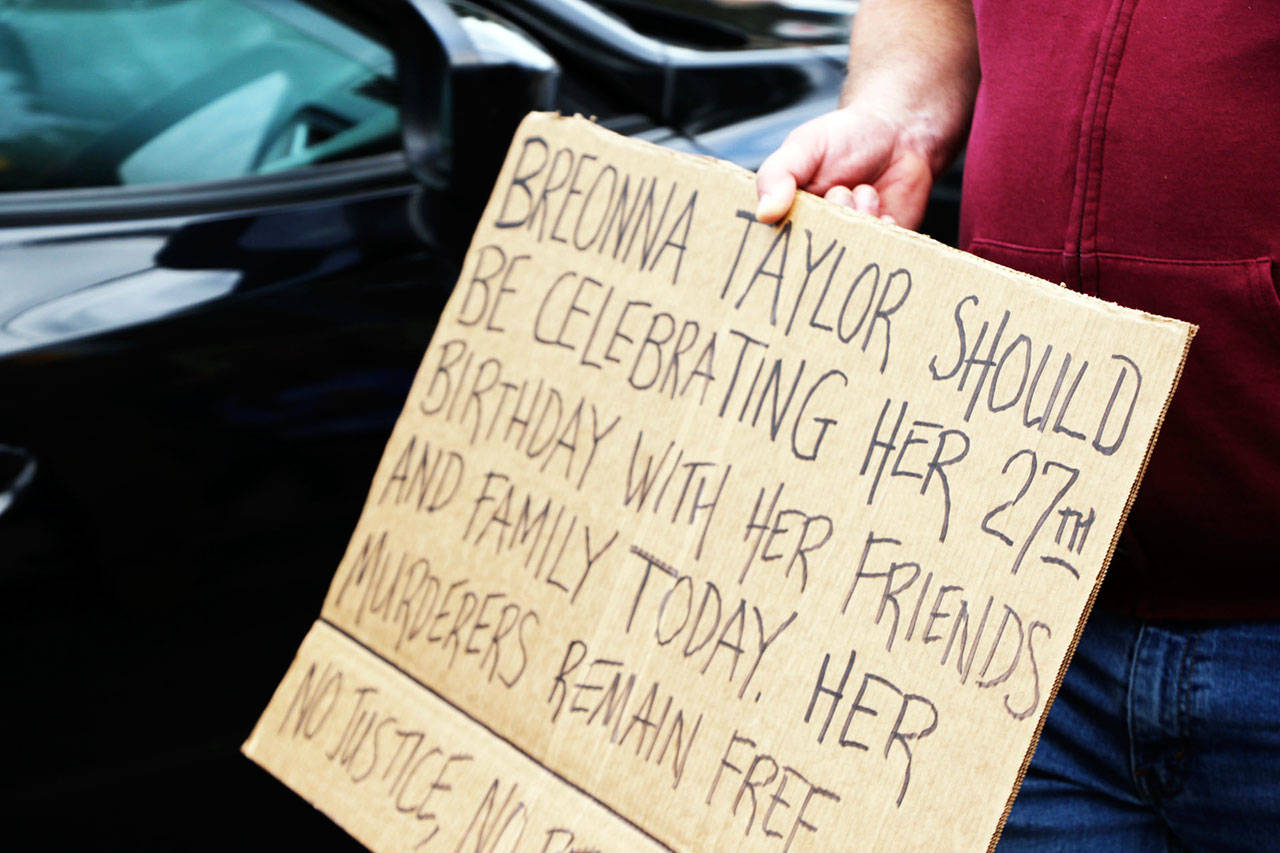 BREONNA TAYLOR SHOULD
BE CELEBRATING HER 27TH
BIRTHDAY WITH HER FRIENDS
AND FAMILY TODAY. HER
MURDERERS REMAIN FREE
NO JUSTICE, NO